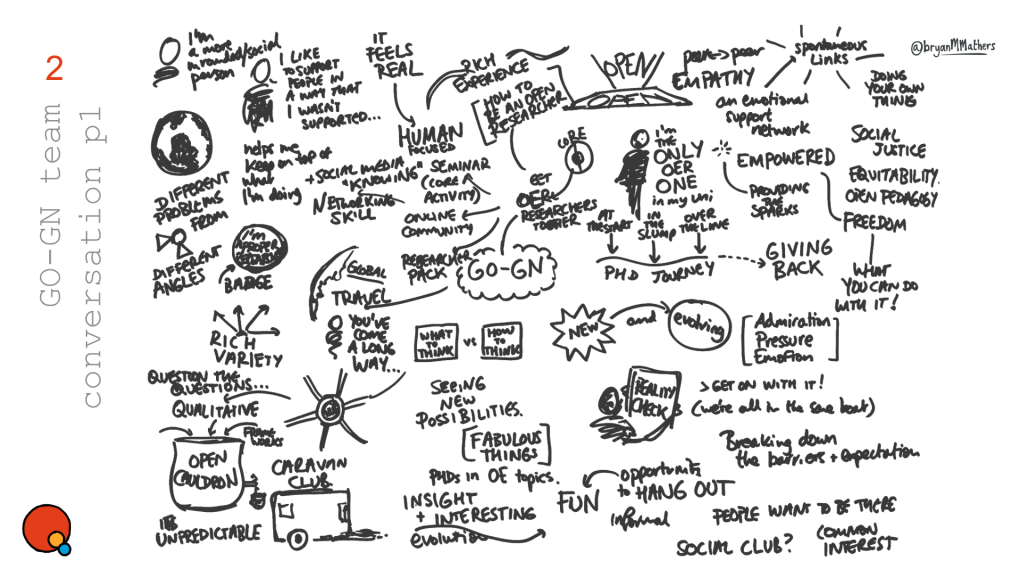 2
GO-GN team
conversation p1
@bryanMMathers
I'm
a more
rounded/social
person
I LIKE
TO SUPPORT
PEOPLE IN
A WAY THAT
I WASN'T
SUPPORTED...
IT
FEELS
REAL
RICH
EXPERIENCE
HOW TO
BE AN OPEN
RESEARCHER
HUMAN
FOCUSED
OPEN
OPEN
peer → peer
EMPATHY
an emotional
support
network
spontaneous
LINKS
DOING
YOUR OWN
THING
DIFFERENT
PROBLEMS
FROM
DIFFERENT
ANGLES
helps me
keep on top of
what
I'm doing
+ SOCIAL MEDIA
"KNOWING"
NETWORKING
SKILL
SEMINAR
(CORE
ACTIVITY)
ONLINE
COMMUNITY
RESEARCHER
PACK
CORE
GET
OER
RESEARCHERS
TOGETHER
GO-GN
I'm
THE
ONLY
OER
ONE
in my uni
AT
THE START
IN
THE
SLUMP
OVER
THE LINE
PHD JOURNEY
GIVING
BACK
EMPOWERED
PROVIDING
THE
SPARKS
SOCIAL
JUSTICE
EQUITABILITY.
OPEN PEDAGOGY
FREEDOM
WHAT
YOU CAN DO
WITH IT!
I'm
A PROPER
BADGE
GLOBAL
TRAVEL
YOU'VE
COME
A LONG
WAY...
RICH
VARIETY
WHAT
TO
THINK
vs
HOW
TO
THINK
NEW
and
evolving
Admiration
Pressure
Emotion
QUESTION THE
QUESTIONS...
QUALITATIVE
FRAME
WORKS
OPEN
CAULDRON
IT'S
UNPREDICTABLE
CARAVAN
CLUB
SEEING
NEW
POSSIBILITIES.
FABULOUS
THINGS
PHDs in OE topics.
INSIGHT
+ INTERESTING
evolution
REALITY
CHECK
> GET ON WITH IT!
(we're all in the same boat)
Breaking down
the barriers + expectation
FUN
opportunity
to HANG OUT
informal
PEOPLE WANT TO BE THERE
SOCIAL CLUB?
COMMON
INTEREST